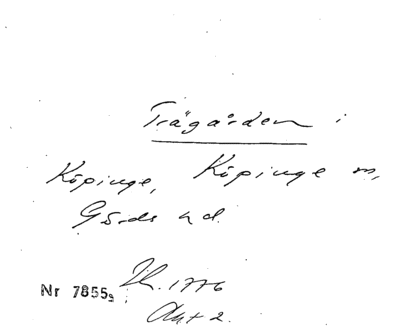 Trägården i
Köpinge, Köpinge sn,
Gärds hd.
Nr 7855g
1776
Akt 2.